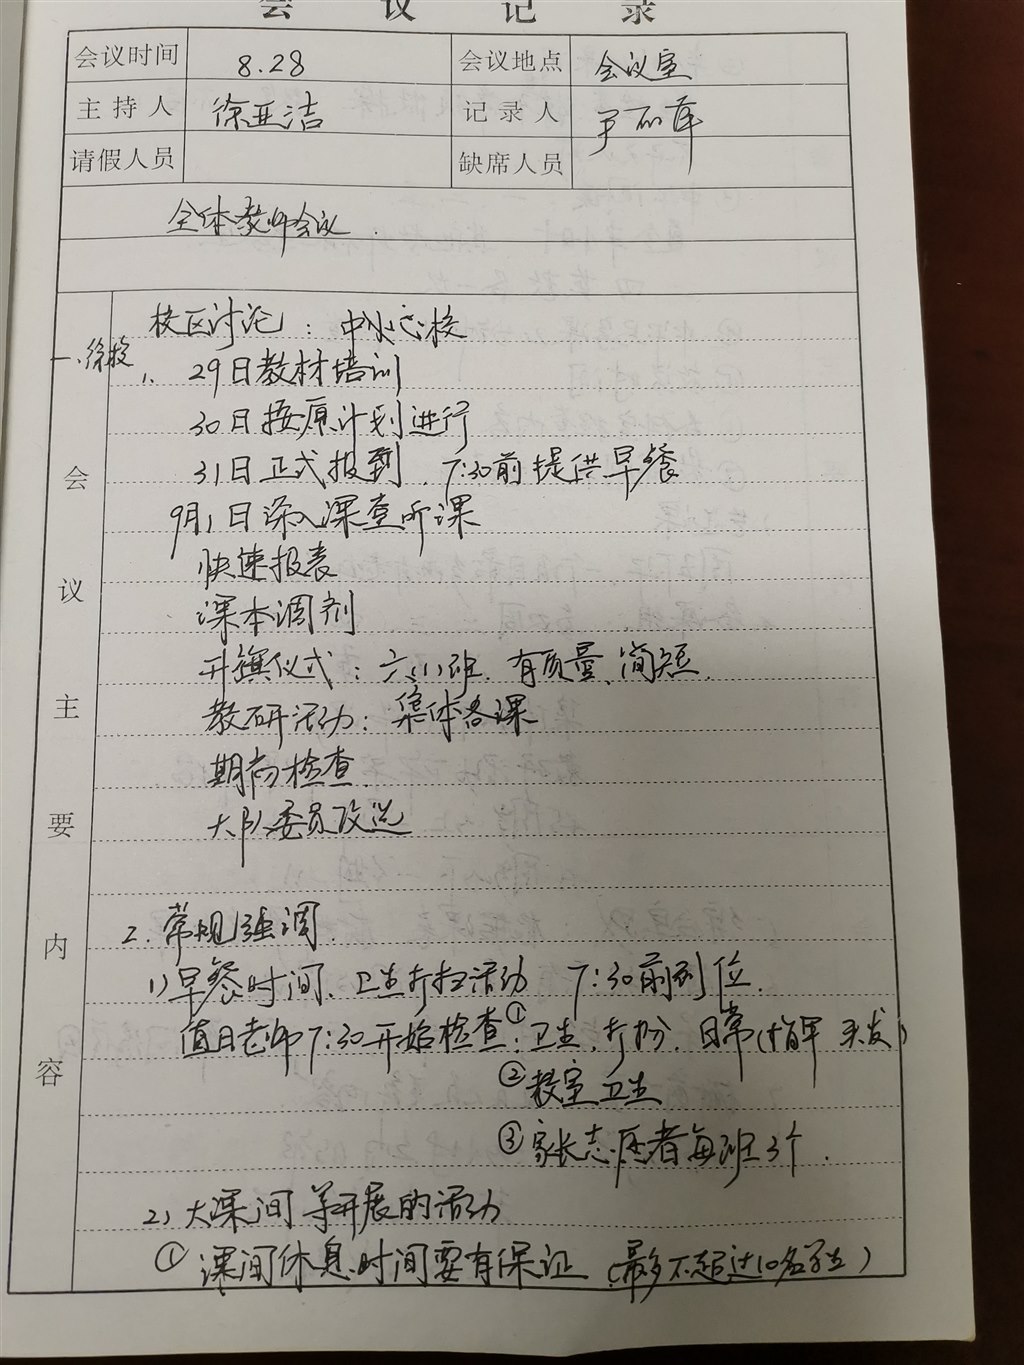 会议记录
会议时间 8.28 会议地点 会议室
主持人 徐亚洁 记录人
请假人员 缺席人员
全体教师会议.
会议主要内容
校区讨论：中心校
一、徐校
1、29日教材培训
30日按原计划进行
31日正式报到，7:30前提供早餐
9月1日深入课堂听课
快速报表
课本调剂
升旗仪式：六（1）班. 有质量、简短.
教研活动：集体备课
期初检查
大队委员改选
2. 常规强调.
1）早餐时间、卫生打扫活动 7:30前到位.
值日老师7:30开始检查：①卫生、打扮、日常（指甲 头发）
②教室卫生
③家长志愿者每班3个.
2）大课间等开展的活动
①课间休息时间要有保证（最多不超过10名学生）